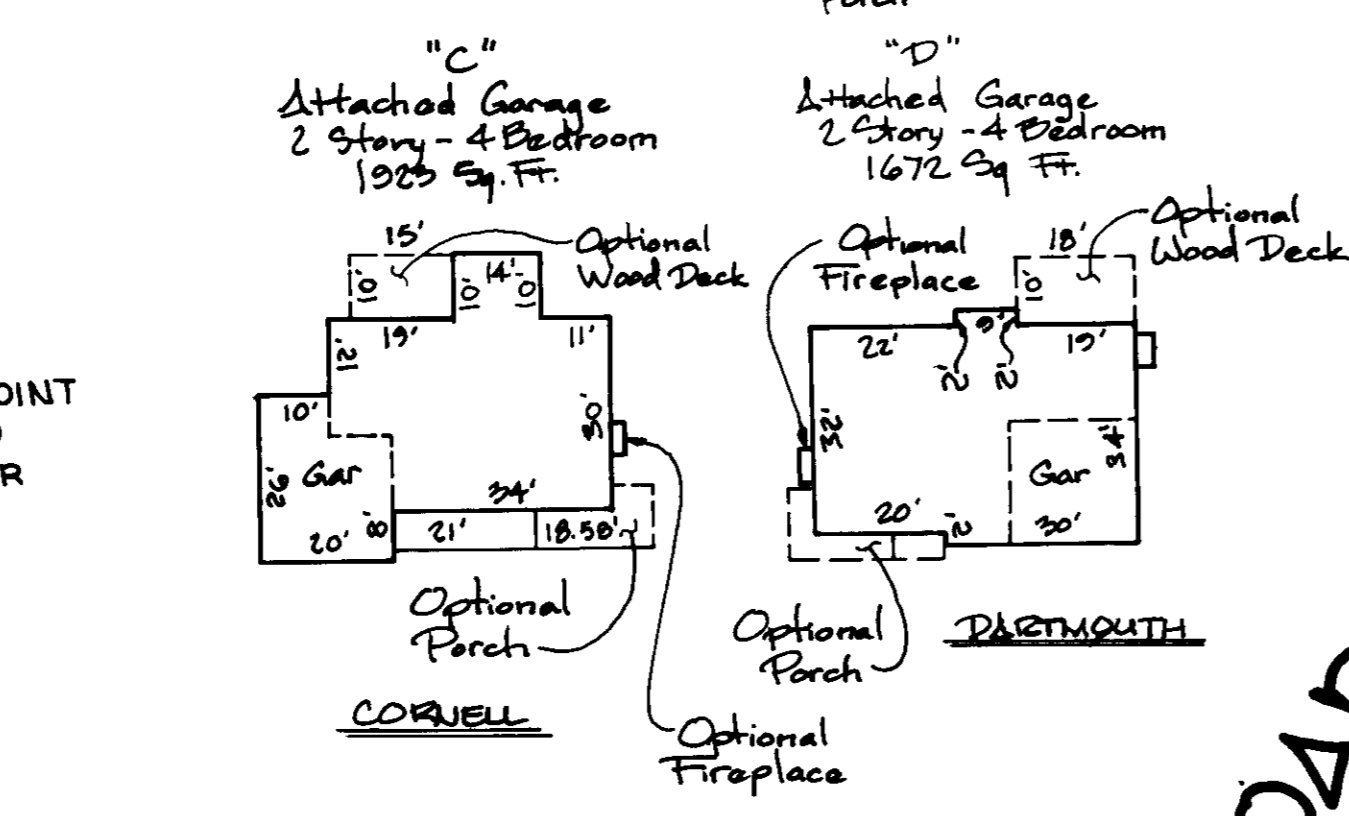 "C"
Attached Garage
2 Story - 4 Bedroom
1923 Sq. Ft.
15'
Optional
Wood Deck
10'
14'
10'
10'
19'
11'
12'
10'
30'
26'
Gar
34'
20'
8'
21'
18.58'
Optional
Porch
CORNELL
Optional
Fireplace
"D"
Attached Garage
2 Story - 4 Bedroom
1672 Sq Ft.
Optional
Fireplace
18'
Optional
Wood Deck
10'
22'
9'
19'
2'
2'
32'
34'
Gar
20'
2'
30'
Optional
Porch
DARTMOUTH
OINT
R